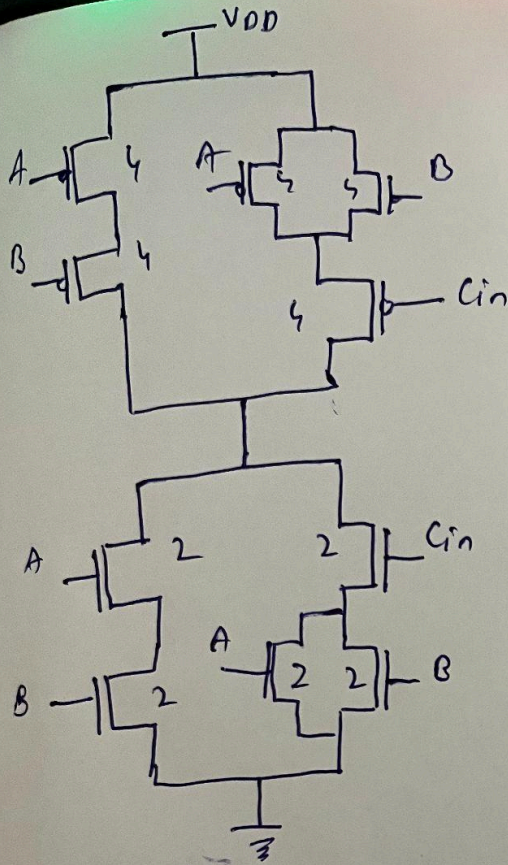 VDD
A 4 A 4 4 B
B 4
4 Cin
A 2 2 Cin
A 2 2 B
B 2